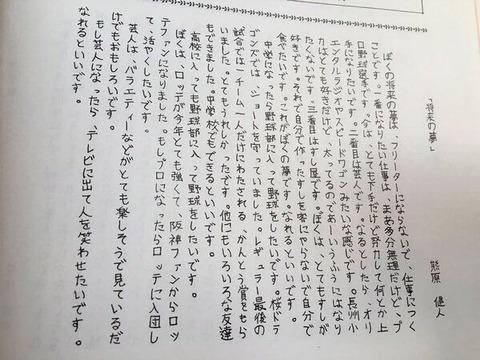 「将来の夢」
ぼくの将来の夢は、フリーターにならないで、仕事につく
ことです。一番になりたい仕事は、まあ多分無理だけど、プ
ロ野球選手です。今は、とても下手だけど努力して何とか上
手になりたいです。二番目は芸人です。なるとしたら、オリ
エンタルラジオやスピードワゴンみたいな感じです。長州小
力はとても好きだけど、太ってるのであーいうふうにはなり
たくないです。三番目はすし屋です。ぼくは、とてもすしが
好きです。それで自分で作ったすしを客にやらないで自分で
食べたいです。これがぼくの夢です。なれるといいです。
中学になったら野球部に入って野球をしたいです。桜ドラ
ゴンズでは、ショートを守っていました。レギュラー最後の
試合では、チーム一人だけにわたされる、かんとう賞をもら
いました。とてもうれしかったです。他にもいろいろな友達
もできました。中学校でもできるといいです。
高校に入っても野球部に入って野球をしたいです。
ぼくは、ロッテが今年とても強くて、阪神ファンからロッ
テファンになりました。もしプロになったらロッテに入団し
て、活やくしたいです。
芸人は、バラエティーなどがとても楽しそうで見ているだ
けでもおもしろいです。
もし芸人になったら、テレビに出て人を笑わせたいです。
なれるといいです。